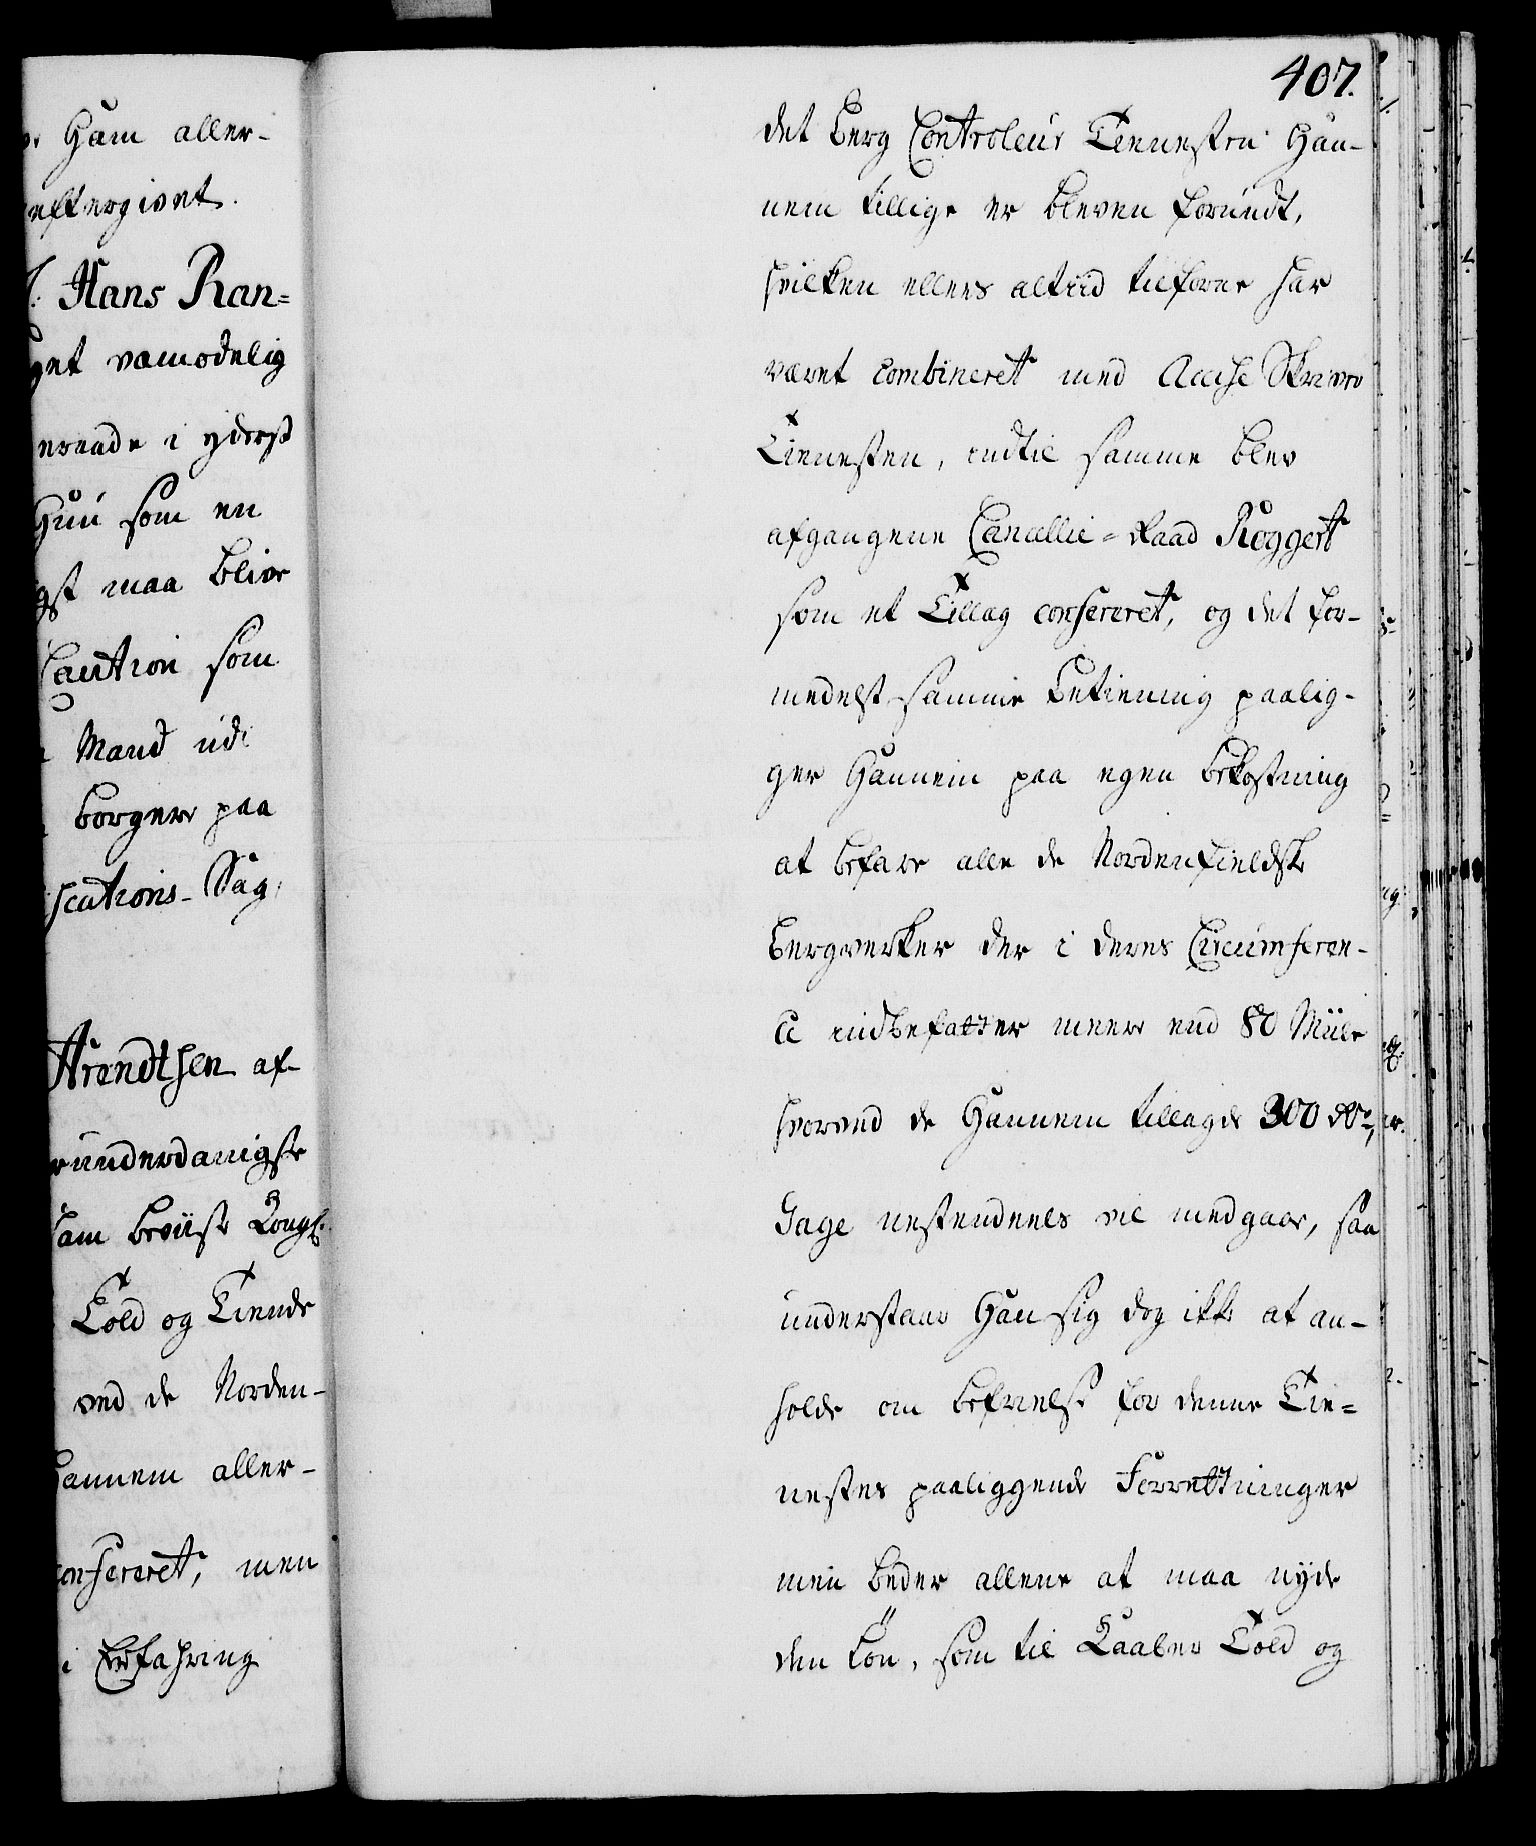 Ham aller-
eftergivet.
Hans Ran-
get vemodelig
eraade i yderst
Huus som en
gst maa blive
Caution som
Mand udi
borgere paa
ications-Sag
Arendtsen af-
underdanigste
ham beviiste Kongl:
Told og Tiende
ved de Norden-
hannem aller-
confereret, men
i Erfahring
407.
det Berg Controleur Tienesten Han-
nem tillige er bleven forundt,
hvilken ellers altiid tilforne har
været combineret med Accise Skriver
Tienesten, indtil samme blev
afgangene Cancellie-Raad Röggert
som et Tillæg confereret, og det for-
medelst samme betiening paalig-
ger Hannem paa egen bekostning
at befare alle de Nordenfieldske
Bergverker der i deres Circumferen-
ce indbefatter meere end 80 Miile
hvorved de Hannem tillagde 300 rdr,
Gage nestendeels vil medgaae, saa
understaar Han sig dog ikke at an-
holde om befrielse for denne Tie-
nestes paaliggende Forrettninger
men beder allene at maa nyde
den Lön, som til Kaaber Told og